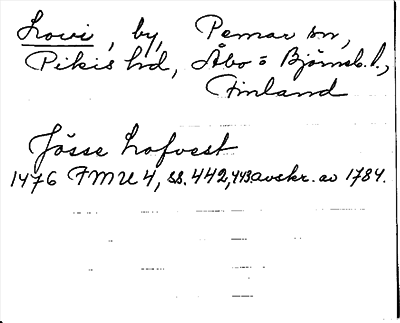 Lovi, by, Pemar sn,
Pikis hd, Åbo o Björneb. l.,
Finland
Jösse Lofvest
1476 FMU 4, ss. 442, 443 avskr. av 1784.